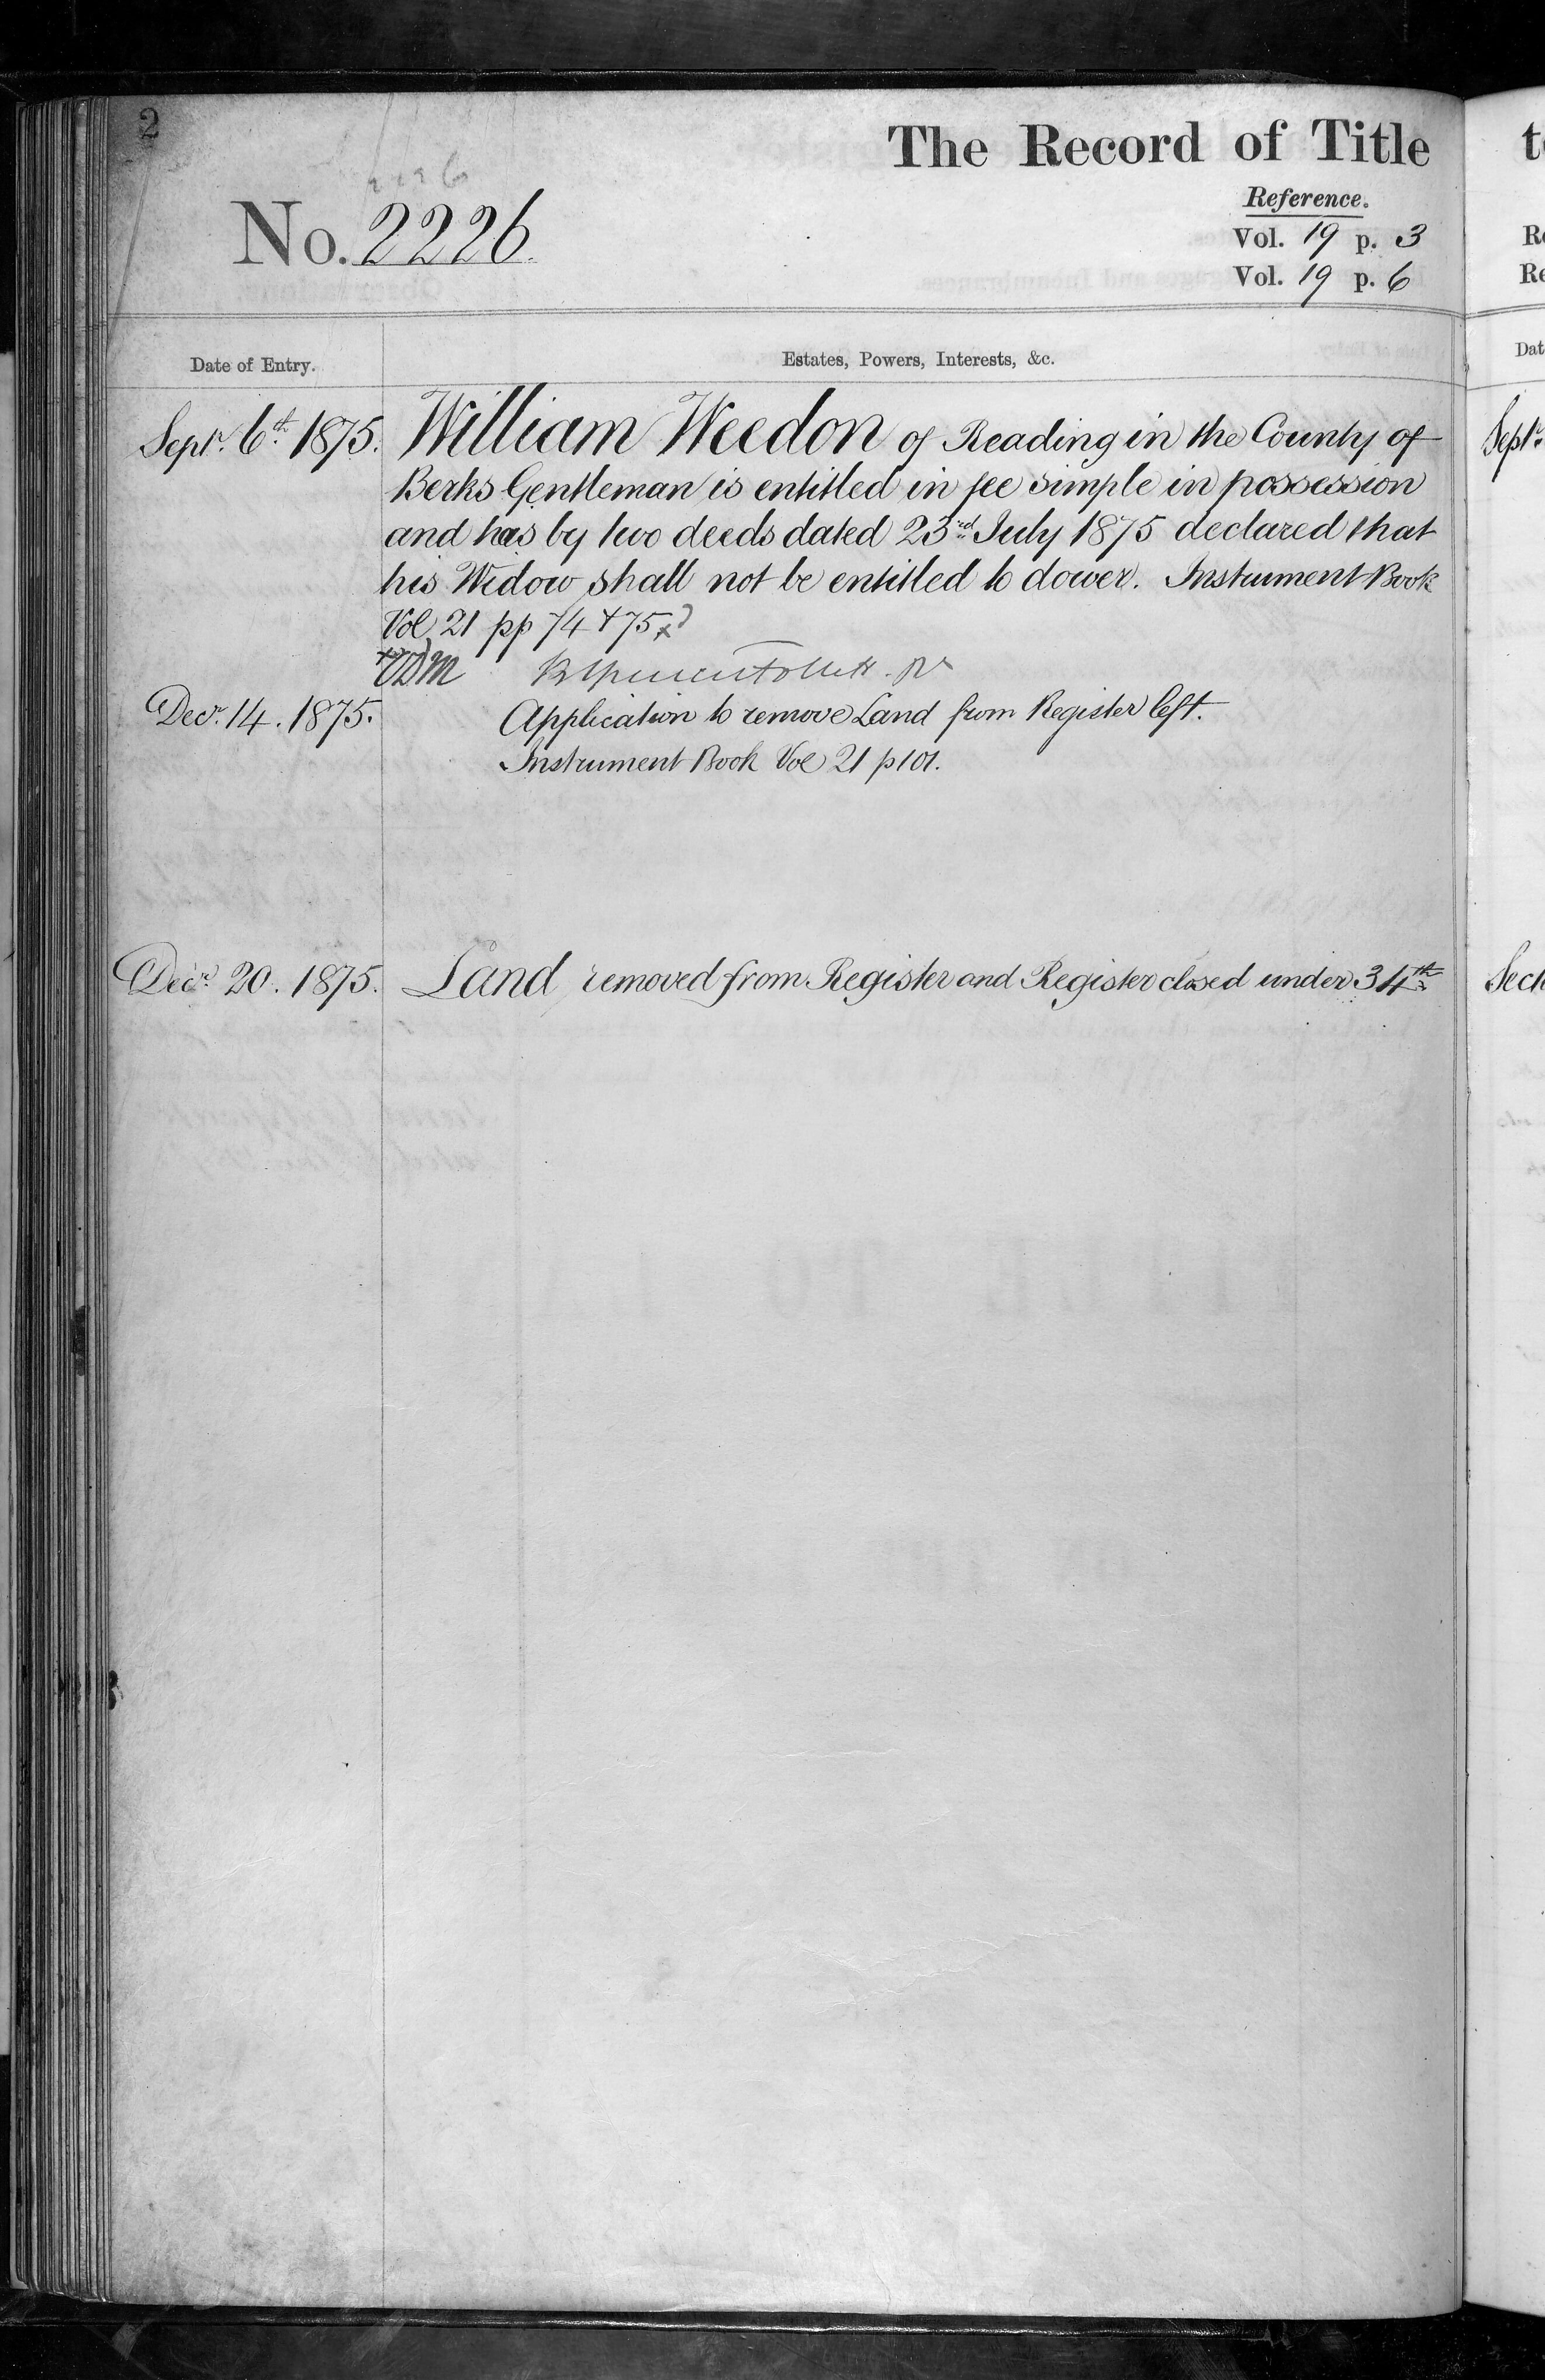 2
The Record of Title
2226
No. 2226.
Reference.
Vol. 19 p. 3
Vol. 19 p. 6
Date of Entry.
Estates, Powers, Interests, &c.
Septr. 6th 1875.
William Weedon of Reading in the County of
Berks Gentleman is entitled in fee simple in possession
and has by two deeds dated 23rd July 1875 declared that
his Widow shall not be entitled to dower. Instrument Book
Vol 21 pp 74 + 75
Decr. 14. 1875.
Application to remove Land from Register left.
Instrument Book Vol 21 p 101.
Decr. 20. 1875.
Land removed from Register and Register closed under 34th
Dat
Septr.
Sect